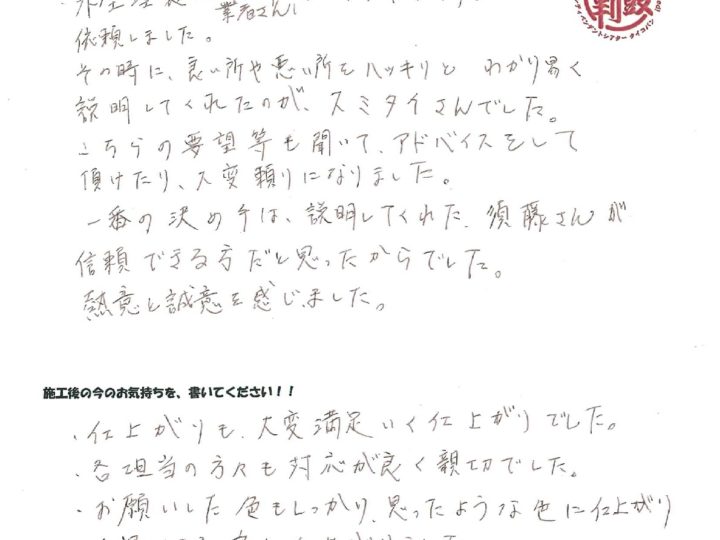 業者さん
依頼しました。
その時に、良い所や悪い所をハッキリと わかり易く
説明してくれたのが、スミタイさんでした。
こちらの要望等も聞いて、アドバイスをして
頂けたり、大変頼りになりました。
一番の決め手は、説明してくれた、須藤さんが
信頼できる方だと思ったからでした。
熱意と誠意を感じました。
施工後の今のお気持ちを、書いてください！！
・仕上がりも、大変満足いく仕上がりでした。
・各担当の方々も対応が良く親切でした。
・お願いした色もしっかり、思ったような色に仕上がり